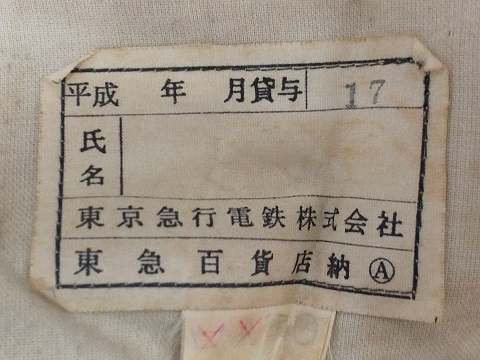 平成 年 月貸与 17
氏名
東京急行電鉄株式会社
東急百貨店納 Ⓐ